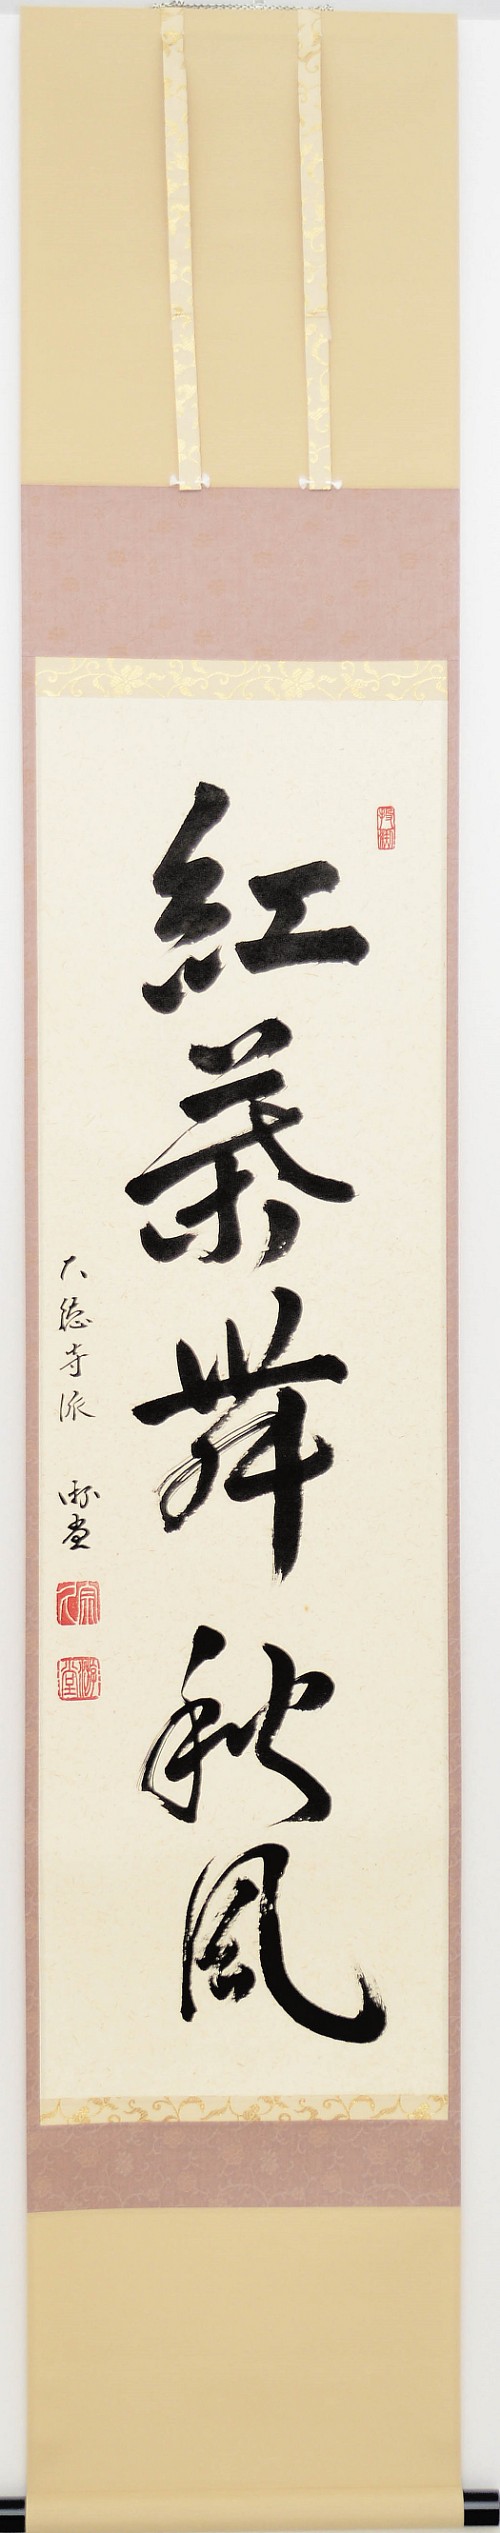 紅葉舞秋風
大徳寺派
宗
堂